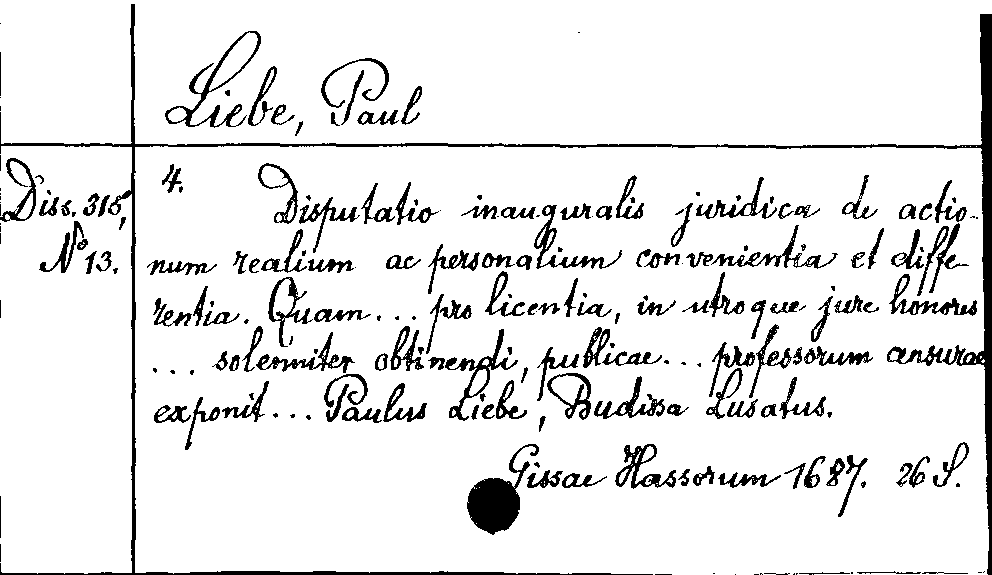 Liebe, Paul
Diss. 315,
No 13.
4.
Disputatio inauguralis juridica de actio-
num realium ac personalium convenientia et diffe-
rentia. Quam... pro licentia, in utroque jure honores
... solemniter obtinendi, publicae... professorum censurae
exponit... Paulus Liebe, Budissa Lusatus.
Gissae Hassorum 1687. 26 S.